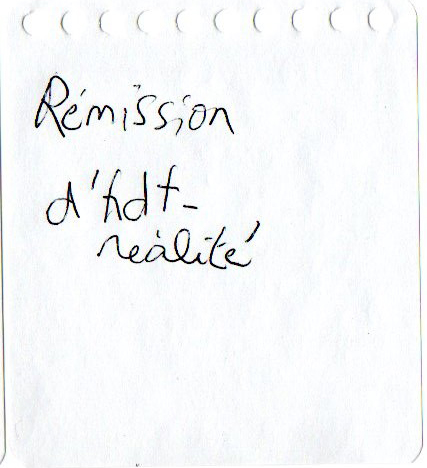 Rémission
d'hdt-
réalité